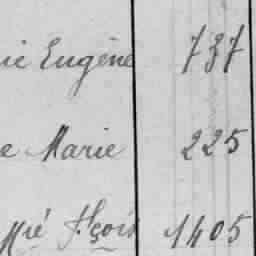 ie Eugène 737
e Marie 225
ré Fçois 1405